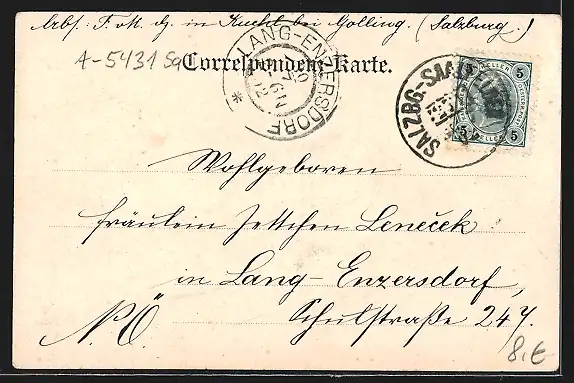 in Kuchl bei Golling. (Salzburg.)
A-5431 Sa
Correspondenz-Karte.
LANG-ENZERSDORF
SALZBG.-SAALFELDEN
5 5
5 5
Wohlgeboren
Fräulein Jettchen Leneček
in Lang-Enzersdorf,
N.Ö. Schulstraße 247.
8,€